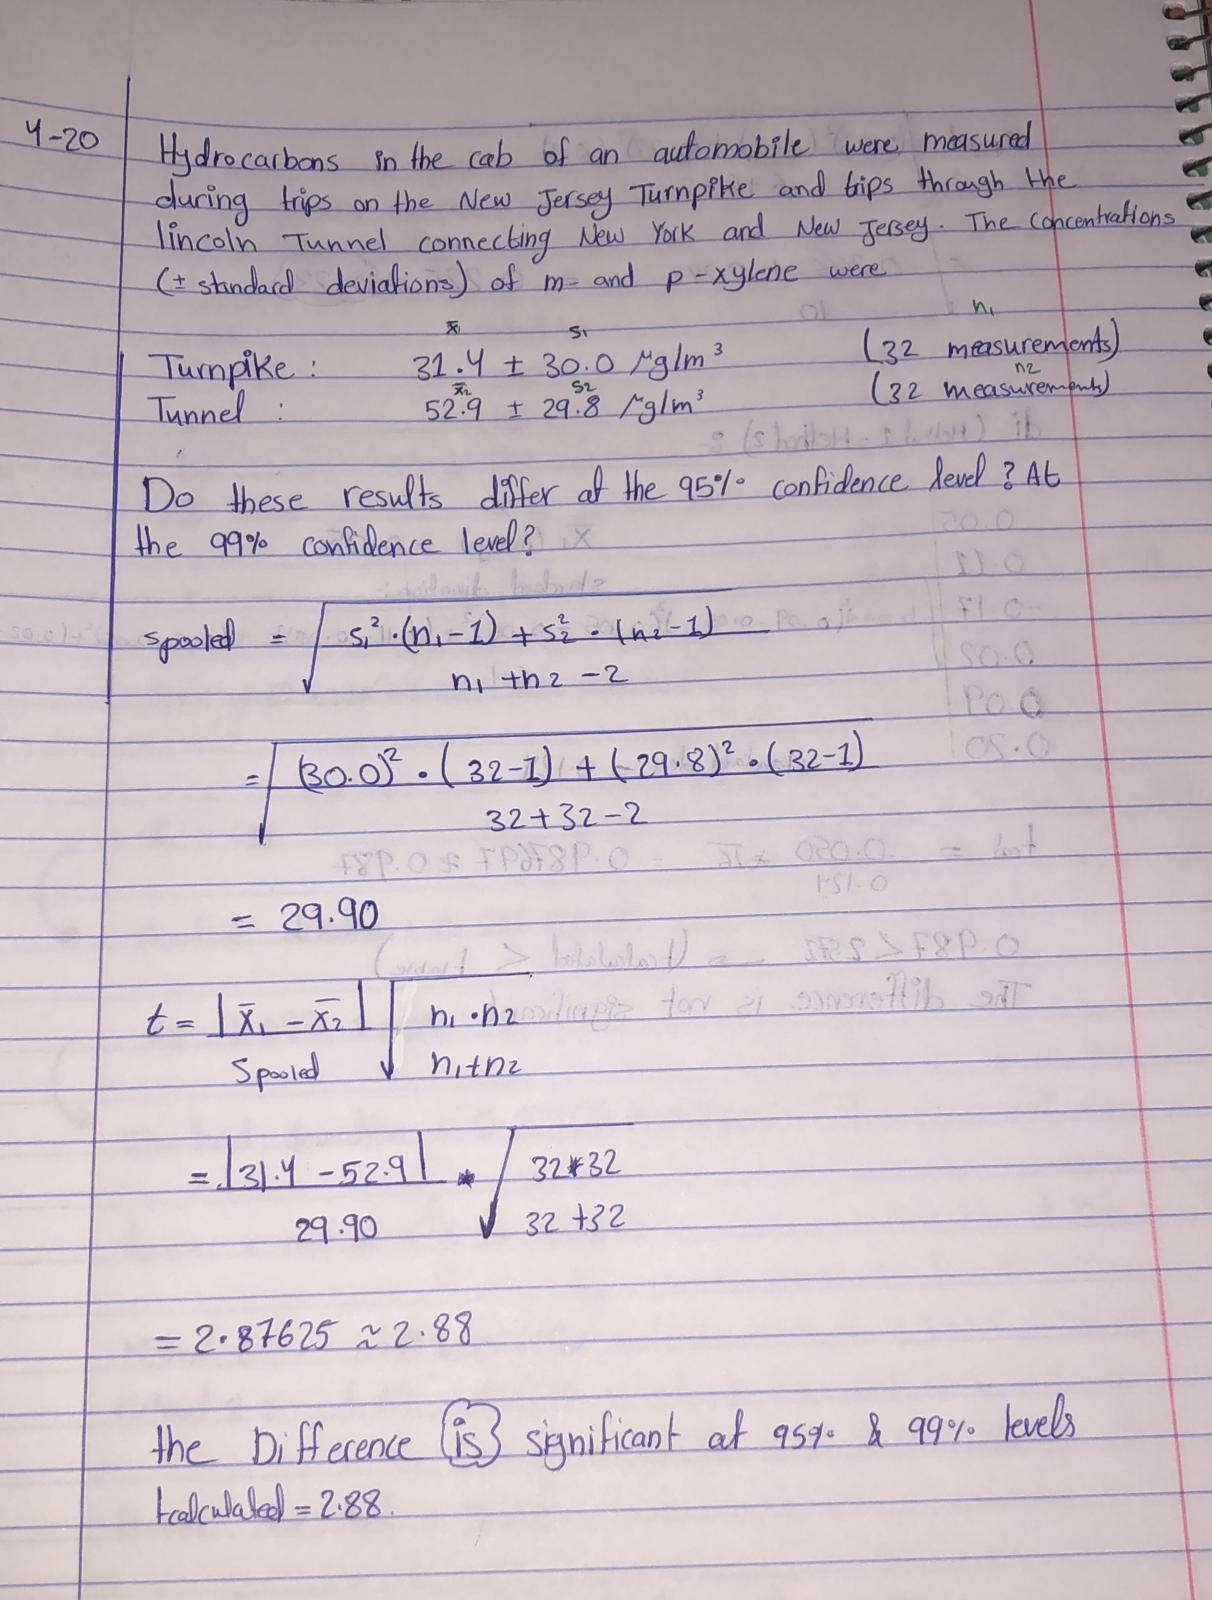 4-20
Hydrocarbons in the cab of an automobile were measured
during trips on the New Jersey Turnpike and trips through the
lincoln Tunnel connecting New York and New Jersey. The concentrations
(± standard deviations) of m- and p-xylene were
x̄₁ s₁ n₁
Turnpike : 31.4 ± 30.0 μg/m³ (32 measurements)
x̄₂ s2 n2
Tunnel : 52.9 ± 29.8 μg/m³ (32 measurements)
Do these results differ at the 95% confidence level? At
the 99% confidence level?
spooled = √ s₁²·(n₁-1) + s₂²·(n₂-1)
n₁ + n2 - 2
= √ (30.0)²·(32-1) + (29.8)²·(32-1)
32+32-2
= 29.90
t = |x̄₁ - x̄₂| √ n₁·n2
Spooled n₁+n2
= |31.4 - 52.9| * √ 32*32
29.90 32+32
= 2.87625 ≈ 2.88
the Difference is significant at 95% & 99% levels
tcalculated = 2.88.